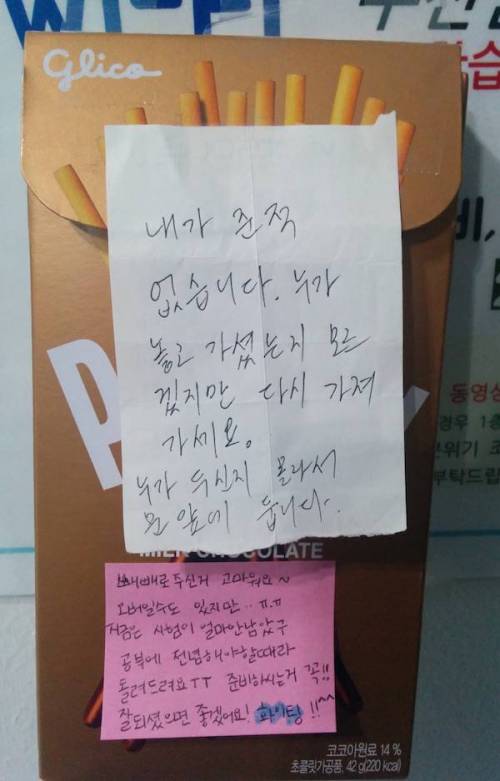 Glico
내가 준적
없습니다. 누가
놓고 가셨는지 모르
겠지만 다시 가져
가세요.
누가 두신지 몰라서
문 앞에 둡니다.
MILK CHOCOLATE
빼빼로 두신거 고마워요~
오버일수도 있지만..ㅠ.ㅠ
지금은 시험이 얼마안남았구
공부에 전념해야할때라
돌려드려요TT 준비하시는거 꼭!!
잘되셨으면 좋겠어요! 화이팅!!^^
코코아원료 14%
초콜릿가공품, 42 g(220 kcal)
습
비,
동영상
경우 1층
분위기 조
부탁드립